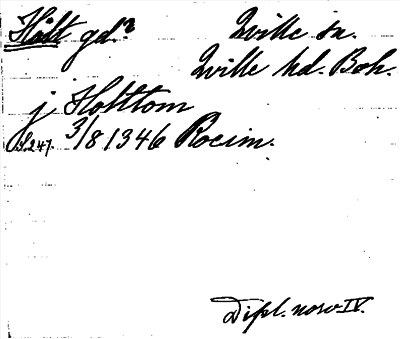 Hült gd? Qville sn.
Qville hd. Boh.
j Holttom
S. 247. 3/8 1346 Rocim.
Dipl. norv. IV.